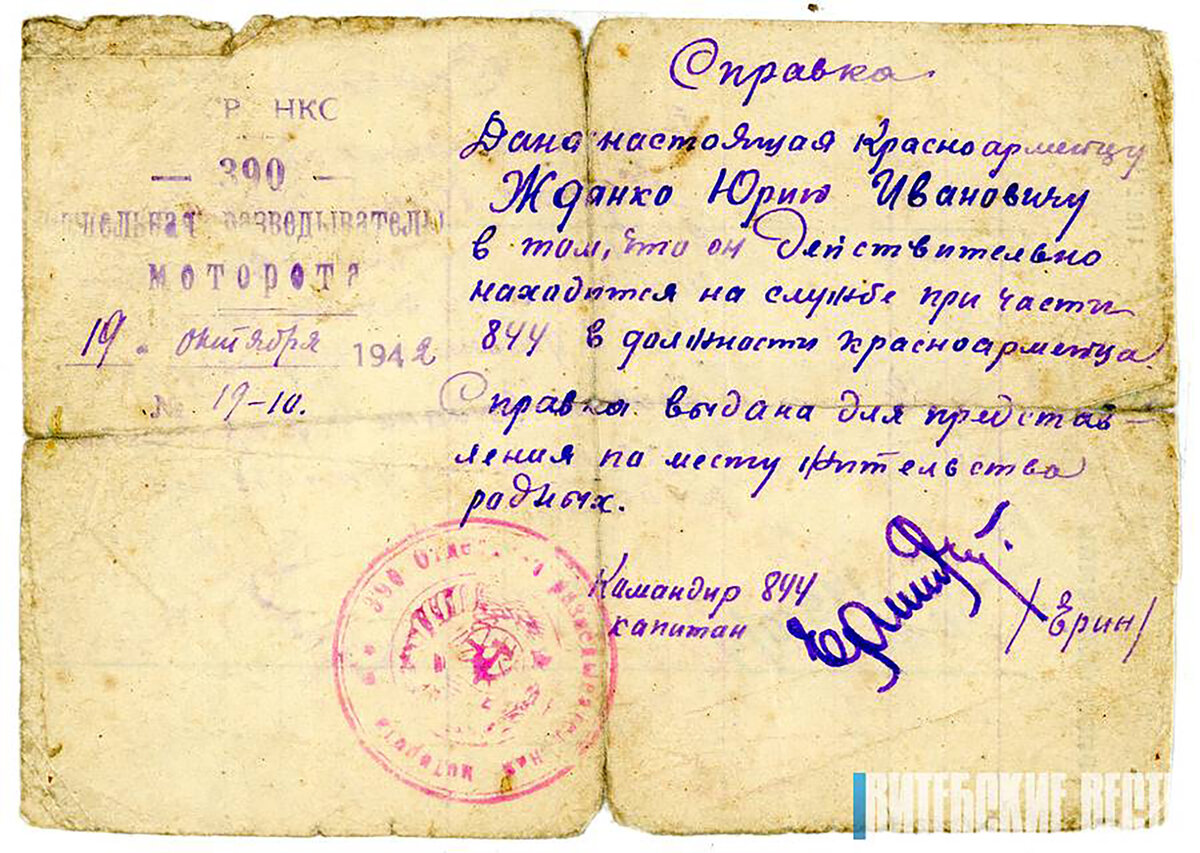 Р НКС
— 390 —
дельная разведыватель
моторота
19. октября 1942
№ 19-10.
Справка
Дана настоящая Красноармейцу
Жданко Юрию Ивановичу
в том, что он действительно
находится на службе при части
844 в должности красноармейца
Справка выдана для представ-
ления по месту жительства
родных.
Командир 844
капитан
/Ерин/
390 Отдельная разведывательная моторота
ВИТЕБСКИЕ ВЕСТ